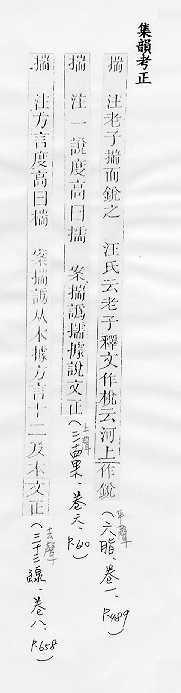 集韻考正
揣 注老子揣而銳之 汪氏云老子釋文作梲云河上作銳(平聲 六脂、卷一、P.489)
揣 注一說度高曰揣 案揣譌揣據說文正(上聲 三十四果、卷六、P.60)
揣 注方言度高曰揣 案揣譌从木據方言十二及本文正(去聲 三十三線、卷八、P.658)